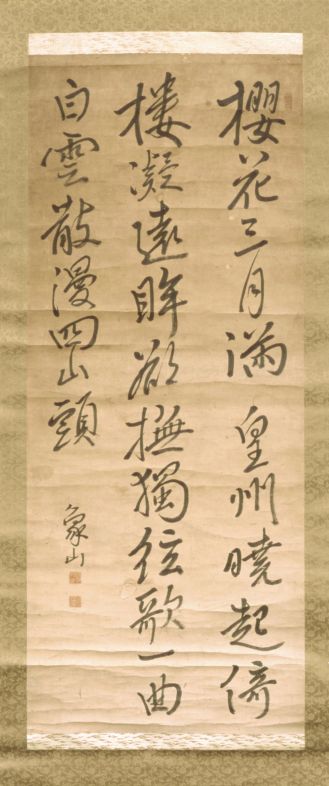 櫻花三月満皇州曉起倚
楼凝遠眸欲撫獨弦歌一曲
白雲散漫四山頭
象山